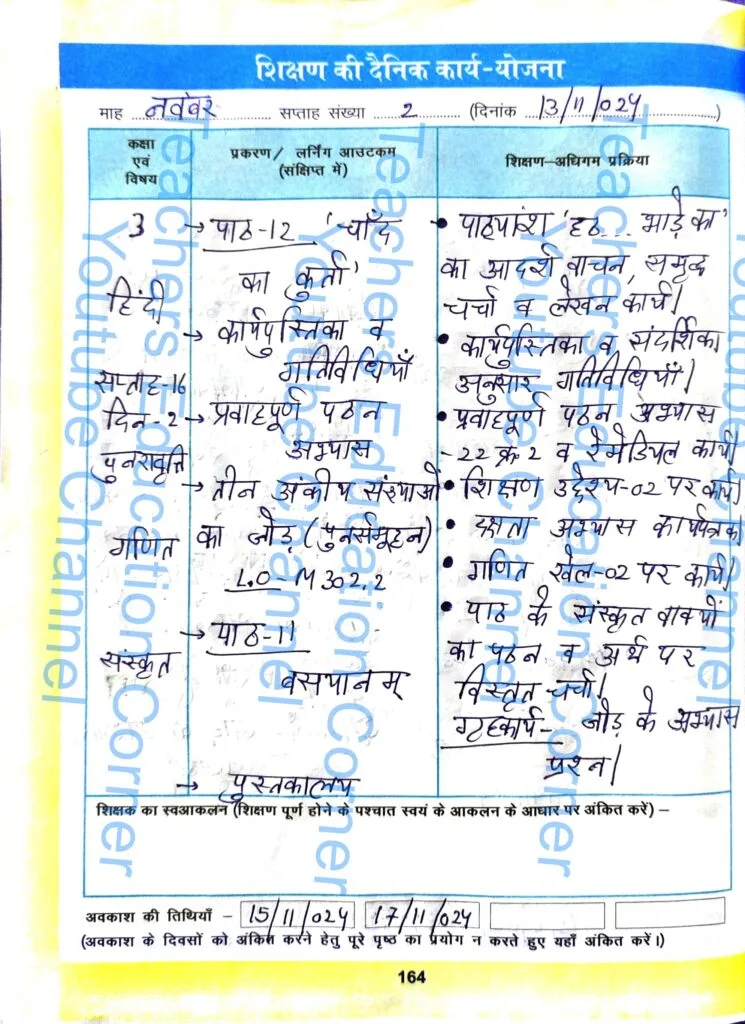 शिक्षण की दैनिक कार्य-योजना
माह नवंबर सप्ताह संख्या 2 (दिनांक 13/11/024)
कक्षा एवं विषय
प्रकरण/ लर्निंग आउटकम (संक्षिप्त में)
शिक्षण-अधिगम प्रक्रिया
3
हिंदी
सप्ताह-16
दिन-2
पुनरावृत्ति
गणित
संस्कृत
→ पाठ-12 'चाँद
का कुर्ता'
→ कार्यपुस्तिका व
गतिविधियाँ
→ प्रवाहपूर्ण पठन
अभ्यास
→ तीन अंकीय संख्याओं
का जोड़ (पुनर्समूहन)
L.O-M302.2
→ पाठ-11
बसयानम्
→ पुस्तकालय
• पाठ्यांश 'हठ... भाड़े का'
का आदर्श वाचन, समृद्ध
चर्चा व लेखन कार्य।
• कार्यपुस्तिका व संदर्शिका
अनुसार गतिविधियाँ।
• प्रवाहपूर्ण पठन अभ्यास
-22 क्र-2 व रेमेडियल कार्य।
• शिक्षण उद्देश्य-02 पर कार्य।
• दक्षता अभ्यास कार्यपत्रक
• गणित खेल-02 पर कार्य।
• पाठ के संस्कृत वाक्यों
का पठन व अर्थ पर
विस्तृत चर्चा।
गृहकार्य- जोड़ के अभ्यास
प्रश्न।
शिक्षक का स्वआकलन (शिक्षण पूर्ण होने के पश्चात स्वयं के आकलन के आधार पर अंकित करें) –
अवकाश की तिथियाँ – 15/11/024 17/11/024
(अवकाश के दिवसों को अंकित करने हेतु पूरे पृष्ठ का प्रयोग न करते हुए यहाँ अंकित करें।)
164
Teachers Education Corner
Youtube Channel
Teachers Education Corner
Youtube Channel
Teachers Education Corner
Youtube Channel